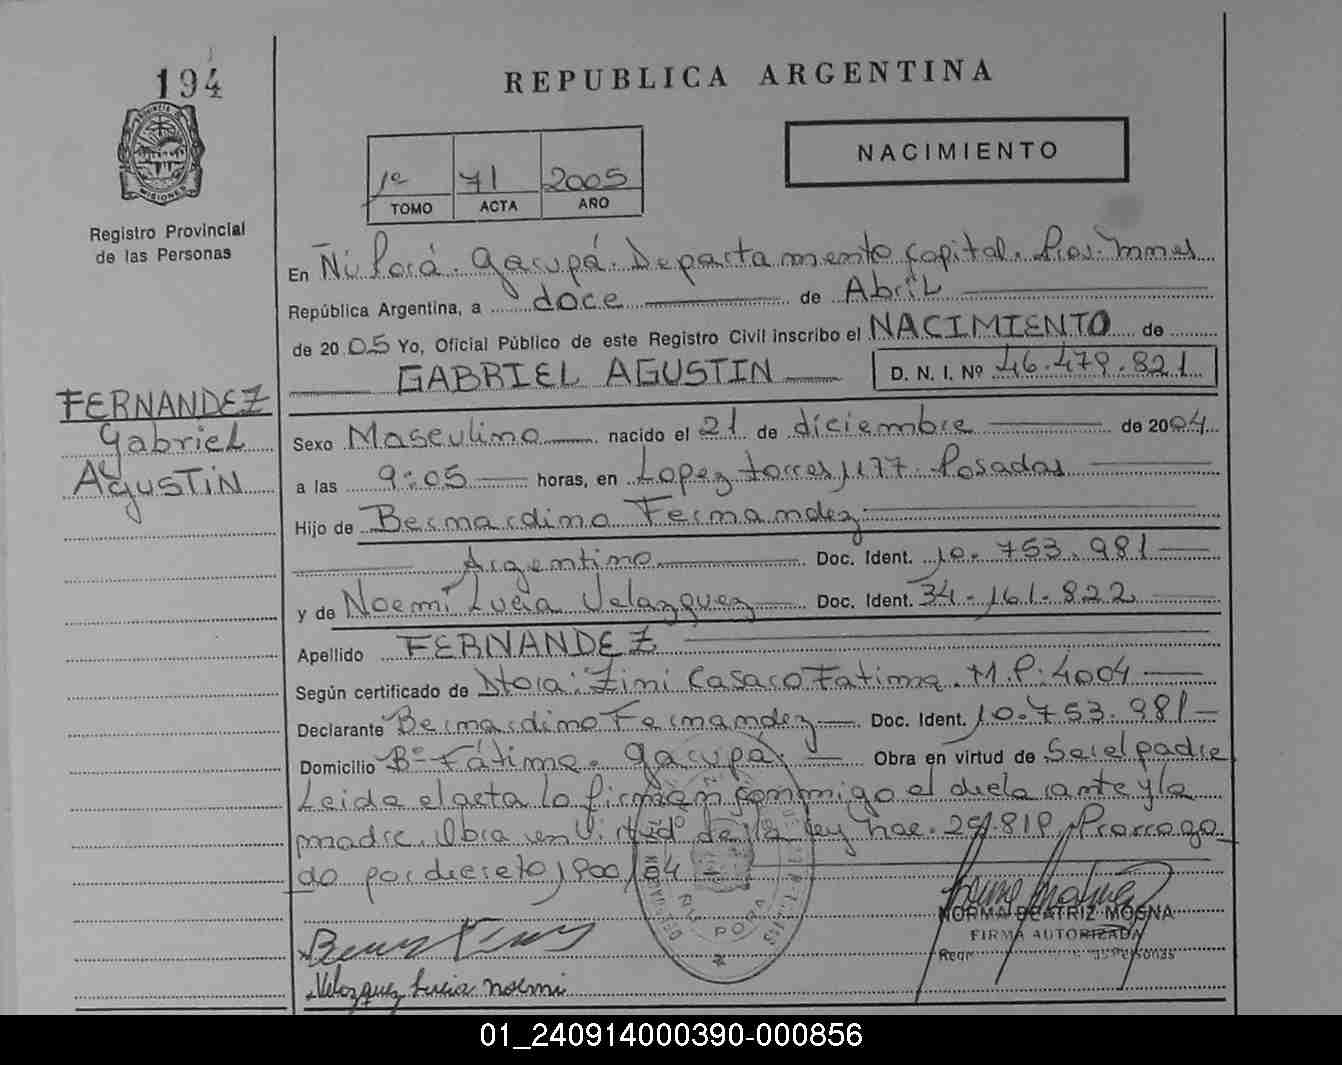 194
PROVINCIA DE MISIONES
Registro Provincial
de las Personas
REPUBLICA ARGENTINA
NACIMIENTO
1º 71 2005
TOMO ACTA AÑO
En Ñu Porá. Garupá. Departamento Capital. Prov. Mnes
República Argentina, a doce de Abril
de 2005 Yo, Oficial Público de este Registro Civil inscribo el NACIMIENTO de
GABRIEL AGUSTIN D. N. I. Nº 46.479.821
FERNANDEZ
Gabriel
AGUSTIN
Sexo Masculino nacido el 21 de diciembre de 2004
a las 9:05 horas, en Lopez torres 1177. Posadas
Hijo de Bernardino Fernandez
Argentino Doc. Ident. 10.753.981
y de Noemi Lucia Velazquez Doc. Ident. 34.161.822
Apellido FERNANDEZ
Según certificado de Dtora: Zini Casaco Fatima. M.P: 4004
Declarante Bernardino Fernandez Doc. Ident. 10.753.981
Domicilio Bº Fátima. Garupá. Obra en virtud de Ser el padre
Leida el acta la firman conmigo el declarante y la
madre. Obra en Virtud de la Ley nac. 25.819. Prorroga
do por decreto 1900/04
ÑU PORA
Velazquez Lucia noemi
NORMA BEATRIZ MOGNA
FIRMA AUTORIZADA
Personas
01_240914000390-000856